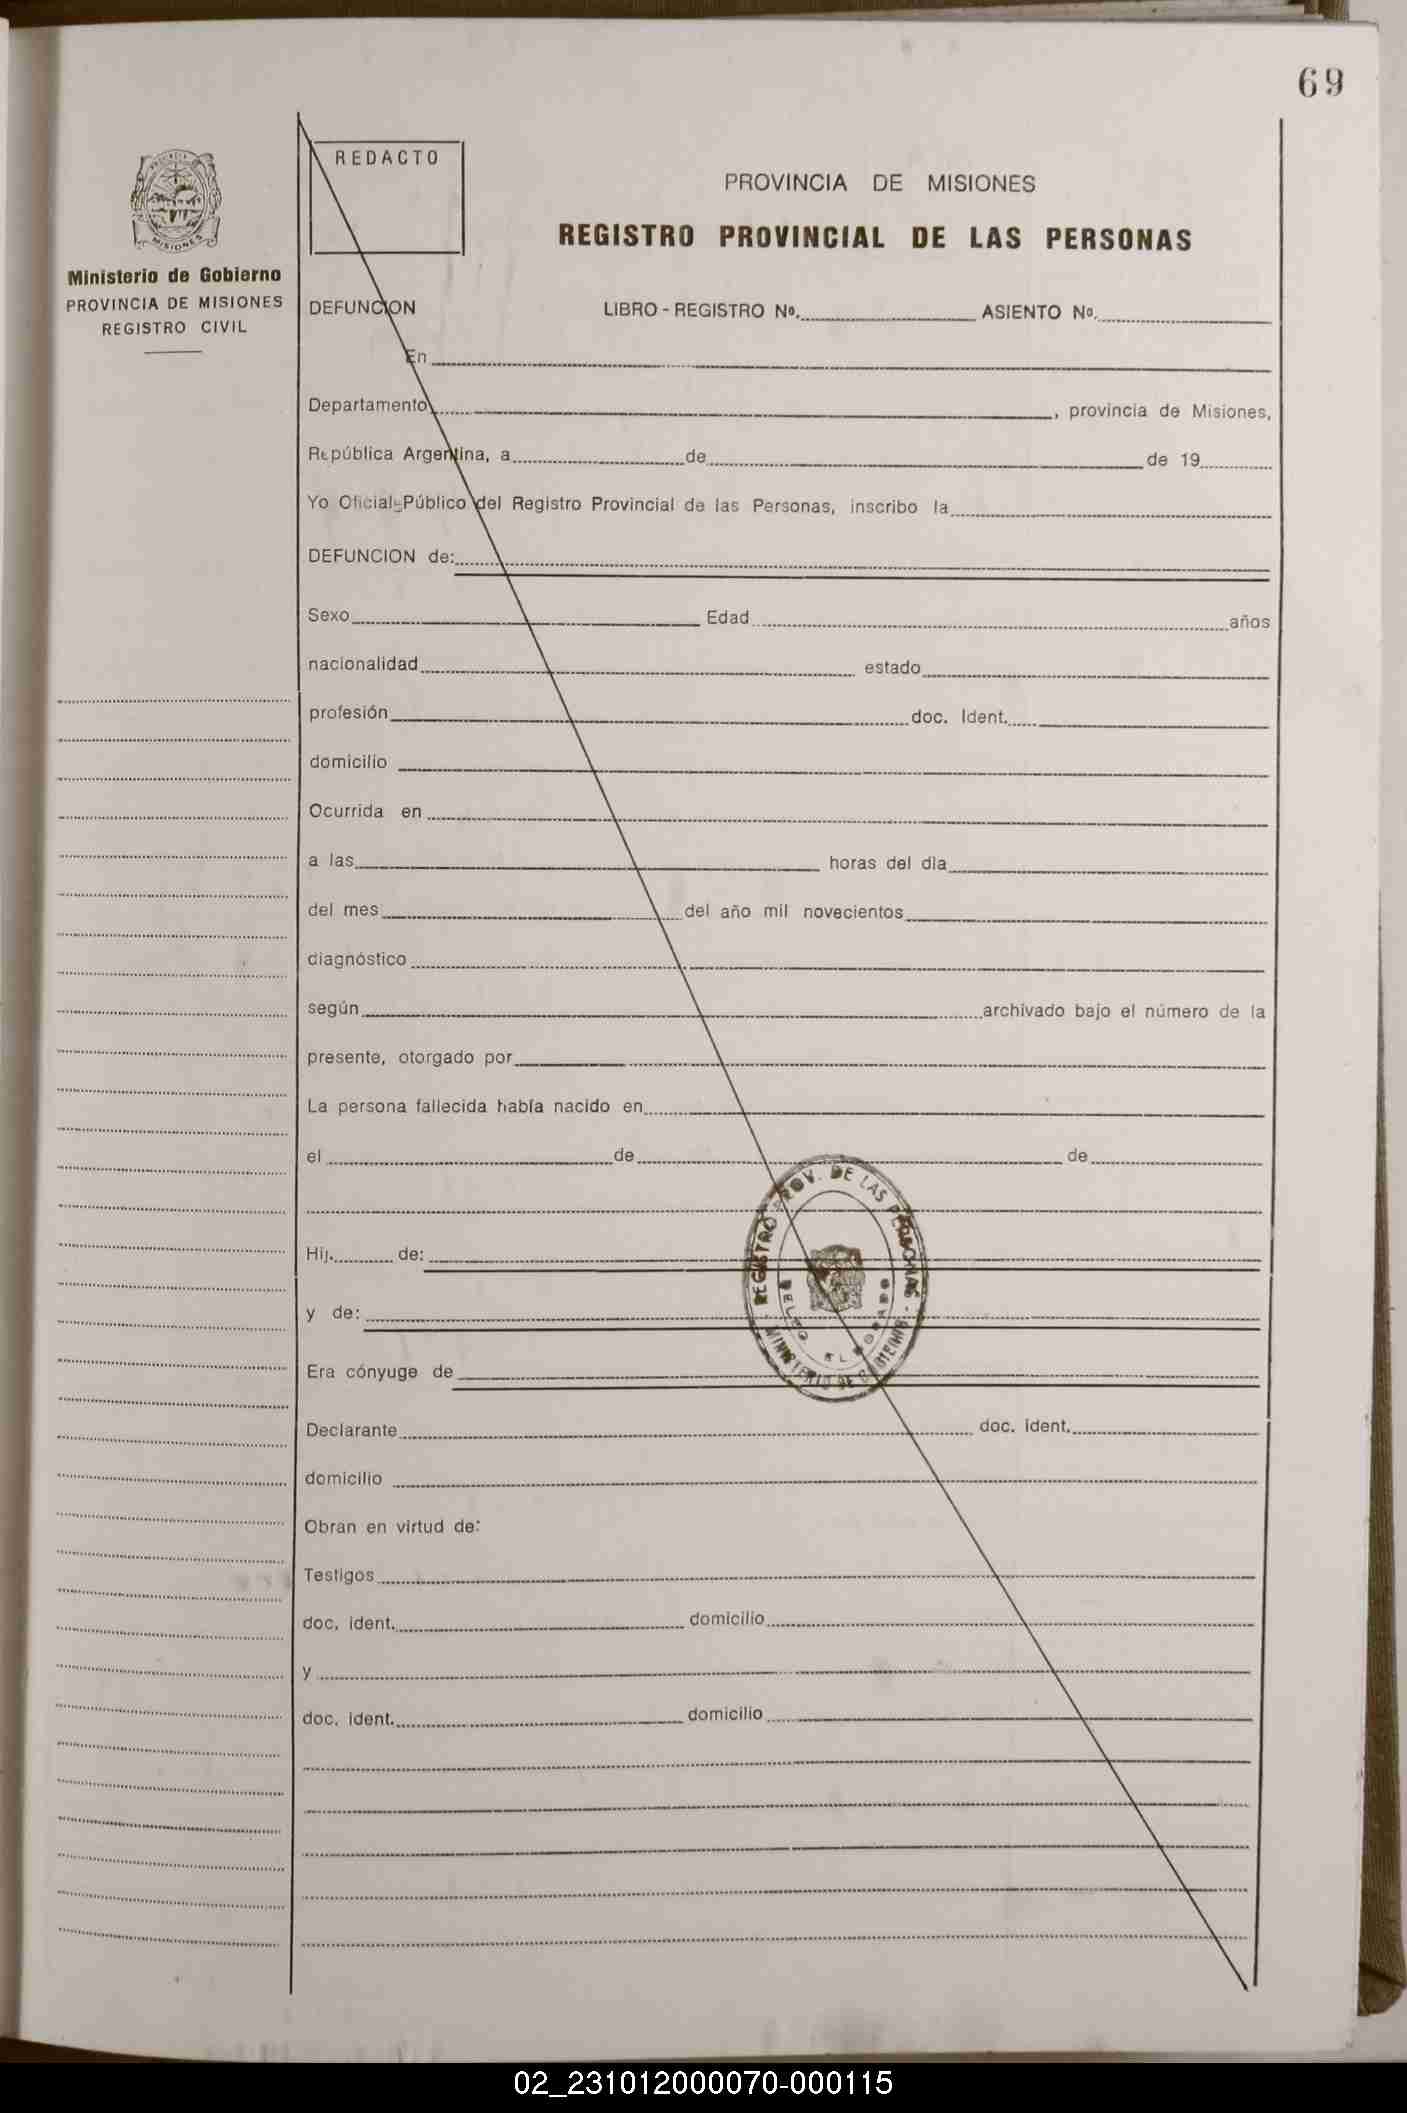 69
REDACTO
PROVINCIA DE MISIONES
REGISTRO PROVINCIAL DE LAS PERSONAS
MISIONES
Ministerio de Gobierno
PROVINCIA DE MISIONES
REGISTRO CIVIL
DEFUNCION LIBRO - REGISTRO Nº. ASIENTO Nº.
En
Departamento , provincia de Misiones,
República Argentina, a de de 19
Yo Oficial Público del Registro Provincial de las Personas, inscribo la
DEFUNCION de:
Sexo Edad años
nacionalidad estado
profesión doc. Ident.
domicilio
Ocurrida en
a las horas del día
del mes del año mil novecientos
diagnóstico
según archivado bajo el número de la
presente, otorgado por
La persona fallecida había nacido en
el de de
Hij. de:
y de:
Era cónyuge de
Declarante doc. ident.
domicilio
Obran en virtud de:
Testigos
doc. ident. domicilio
y
doc. ident. domicilio
REGISTRO PROV. DE LAS PERSONAS
02_231012000070-000115